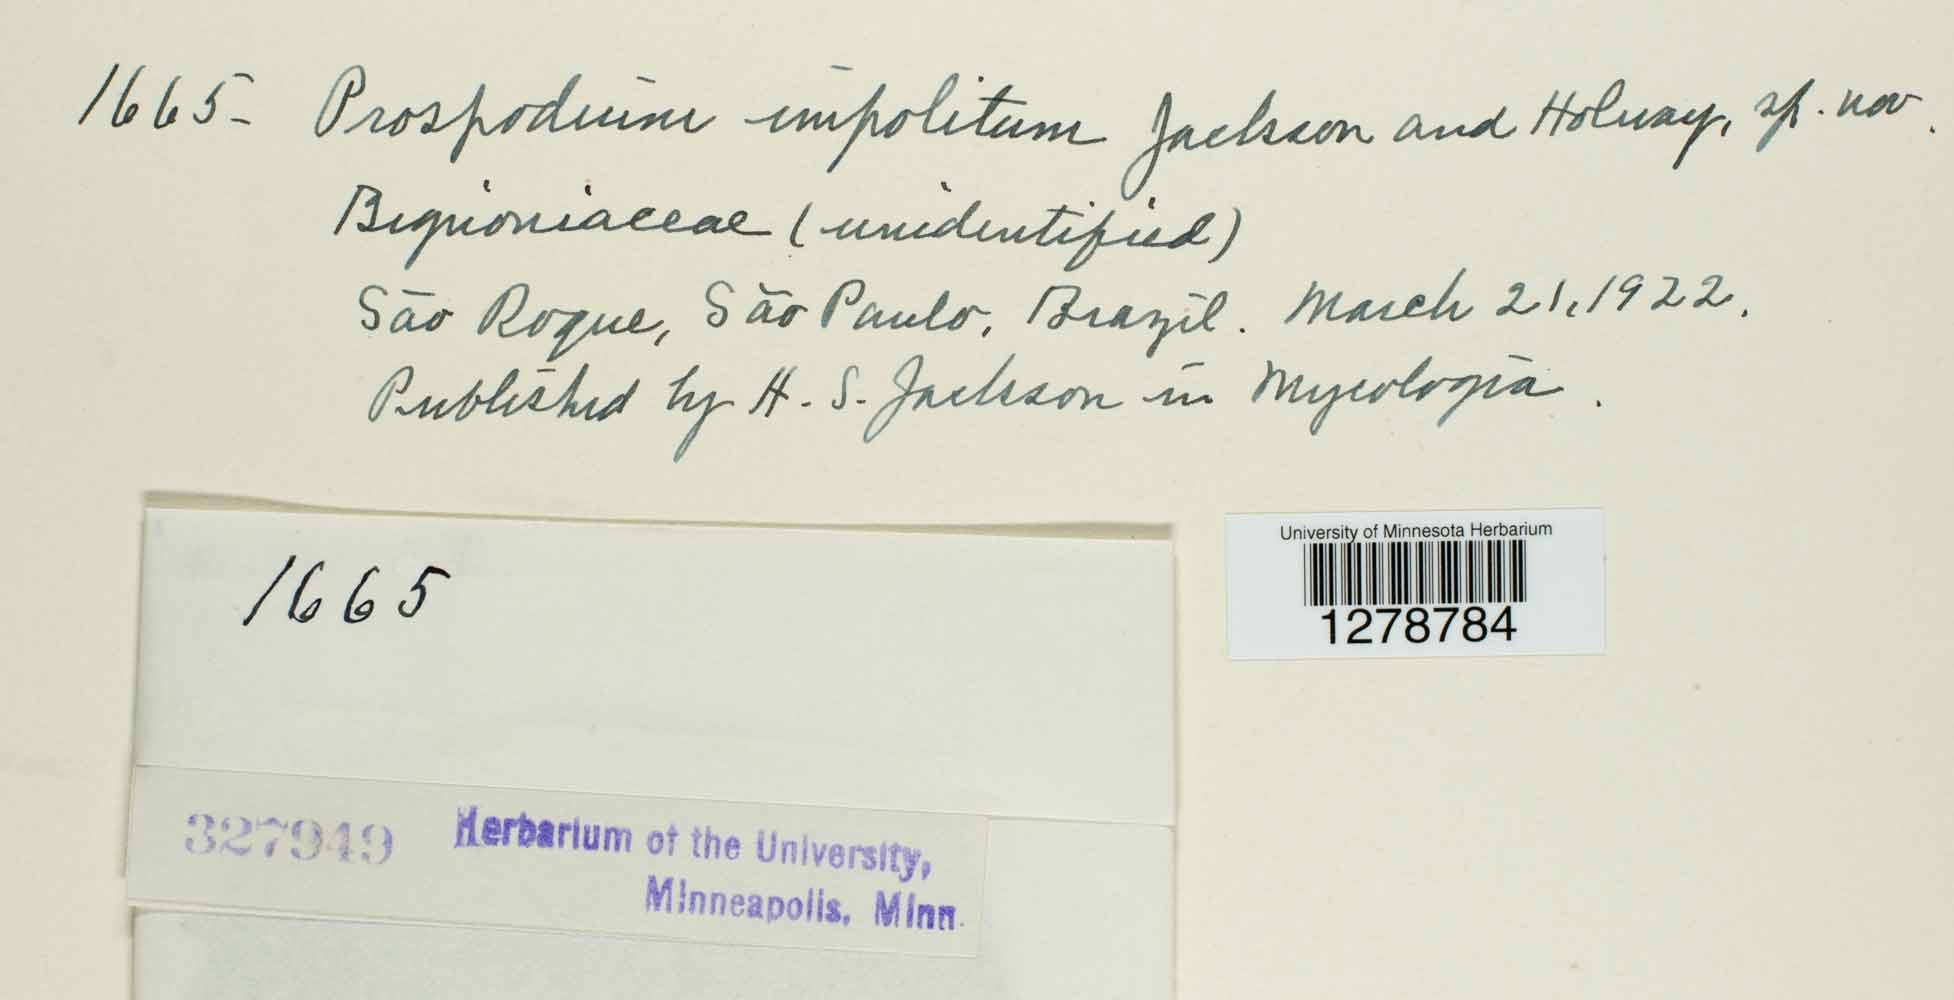 1665- Prospodium impolitum Jackson and Holway, sp. nov.
Bignoniaceae (unidentified)
São Roque, São Paulo, Brazil. March 21, 1922.
Published by H. S. Jackson in Mycologia.
1665
University of Minnesota Herbarium
1278784
327949 Herbarium of the University,
Minneapolis, Minn.